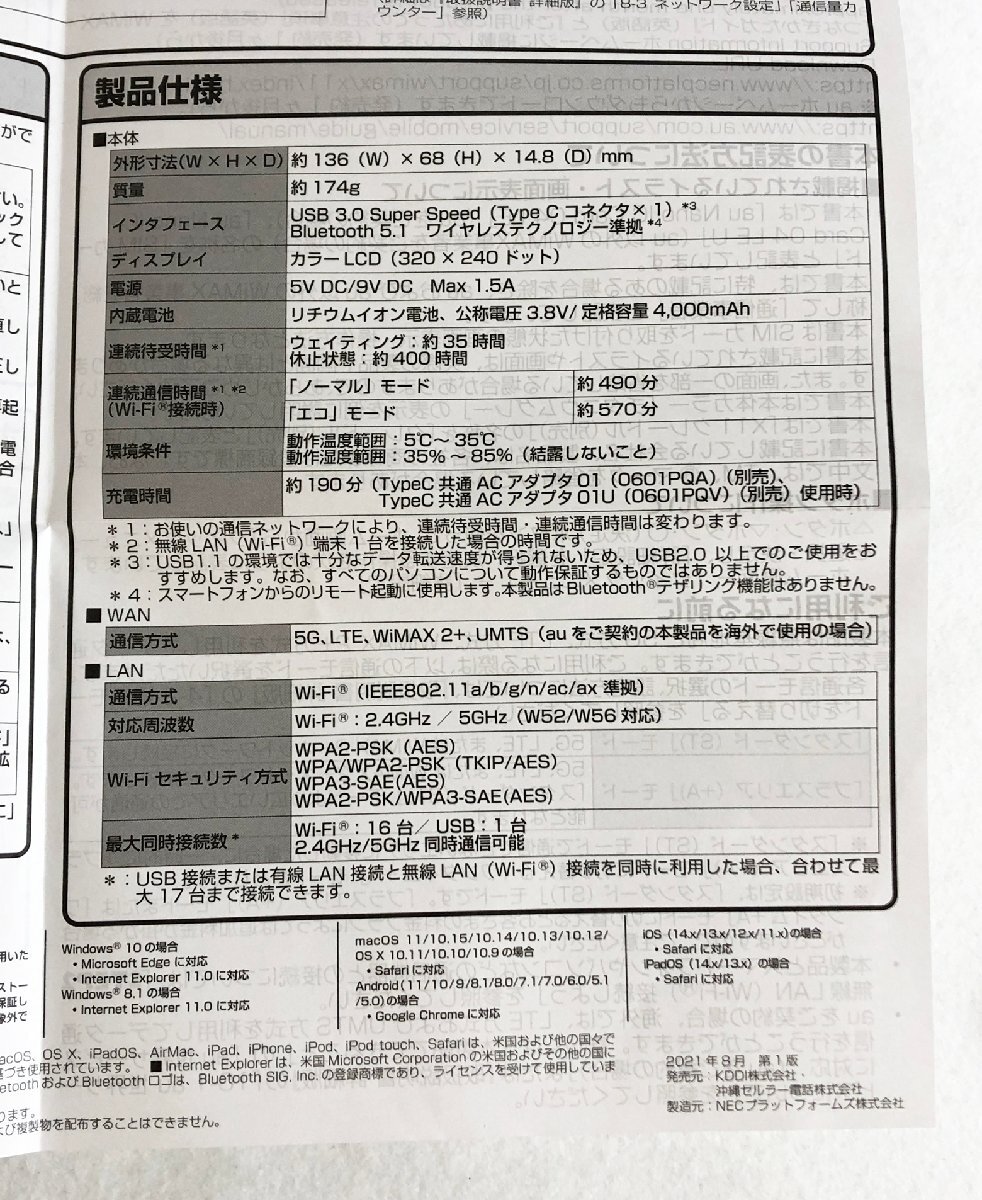 (詳細は『取扱説明書 詳細版』の「8-3 ネットワーク設定」「通信量カ
ウンター」参照)
製品仕様
■本体
外形寸法(W×H×D) 約136(W)×68(H)×14.8(D)mm
質量 約174g
インタフェース USB 3.0 Super Speed(Type Cコネクタ×1)*3
Bluetooth 5.1 ワイヤレステクノロジー準拠*4
ディスプレイ カラーLCD(320×240ドット)
電源 5V DC/9V DC Max 1.5A
内蔵電池 リチウムイオン電池、公称電圧3.8V/定格容量4,000mAh
連続待受時間*1 ウェイティング:約35時間
休止状態:約400時間
連続通信時間*1 *2
(Wi-Fi®接続時)
「ノーマル」モード 約490分
「エコ」モード 約570分
環境条件 動作温度範囲:5℃~35℃
動作湿度範囲:35%~85%(結露しないこと)
充電時間 約190分(TypeC共通ACアダプタ01(0601PQA)(別売)、
TypeC共通ACアダプタ01U(0601PQV)(別売)使用時)
*1:お使いの通信ネットワークにより、連続待受時間・連続通信時間は変わります。
*2:無線LAN(Wi-Fi®)端末1台を接続した場合の時間です。
*3:USB1.1の環境では十分なデータ転送速度が得られないため、USB2.0以上でのご使用をお
すすめします。なお、すべてのパソコンについて動作保証するものではありません。
*4:スマートフォンからのリモート起動に使用します。本製品はBluetooth®テザリング機能はありません。
■WAN
通信方式 5G、LTE、WiMAX 2+、UMTS(auをご契約の本製品を海外で使用の場合)
■LAN
通信方式 Wi-Fi®(IEEE802.11a/b/g/n/ac/ax準拠)
対応周波数 Wi-Fi®:2.4GHz/5GHz(W52/W56対応)
Wi-Fiセキュリティ方式 WPA2-PSK(AES)
WPA/WPA2-PSK(TKIP/AES)
WPA3-SAE(AES)
WPA2-PSK/WPA3-SAE(AES)
最大同時接続数* Wi-Fi®:16台/USB:1台
2.4GHz/5GHz同時通信可能
*:USB接続または有線LAN接続と無線LAN(Wi-Fi®)接続を同時に利用した場合、合わせて最
大17台まで接続できます。
Windows® 10の場合
・Microsoft Edgeに対応
・Internet Explorer 11.0に対応
Windows® 8.1の場合
・Internet Explorer 11.0に対応
macOS 11/10.15/10.14/10.13/10.12/
OS X 10.11/10.10/10.9の場合
・Safariに対応
Android(11/10/9/8.1/8.0/7.1/7.0/6.0/5.1
/5.0)の場合
・Google Chromeに対応
iOS(14.x/13.x/12.x/11.x)の場合
・Safariに対応
iPadOS(14.x/13.x)の場合
・Safariに対応
acOS、OS X、iPadOS、AirMac、iPad、iPhone、iPod、iPod touch、Safariは、米国および他の国々で
基づき使用されています。 ■Internet Explorerは、米国Microsoft Corporationの米国およびその他の国に
etoothおよびBluetoothロゴは、Bluetooth SIG, Inc.の登録商標であり、ライセンスを受けて使用していま
ります。
よび複製物を配布することはできません。
2021年8月 第1版
発売元:KDDI株式会社
沖縄セルラー電話株式会社
製造元:NECプラットフォームズ株式会社